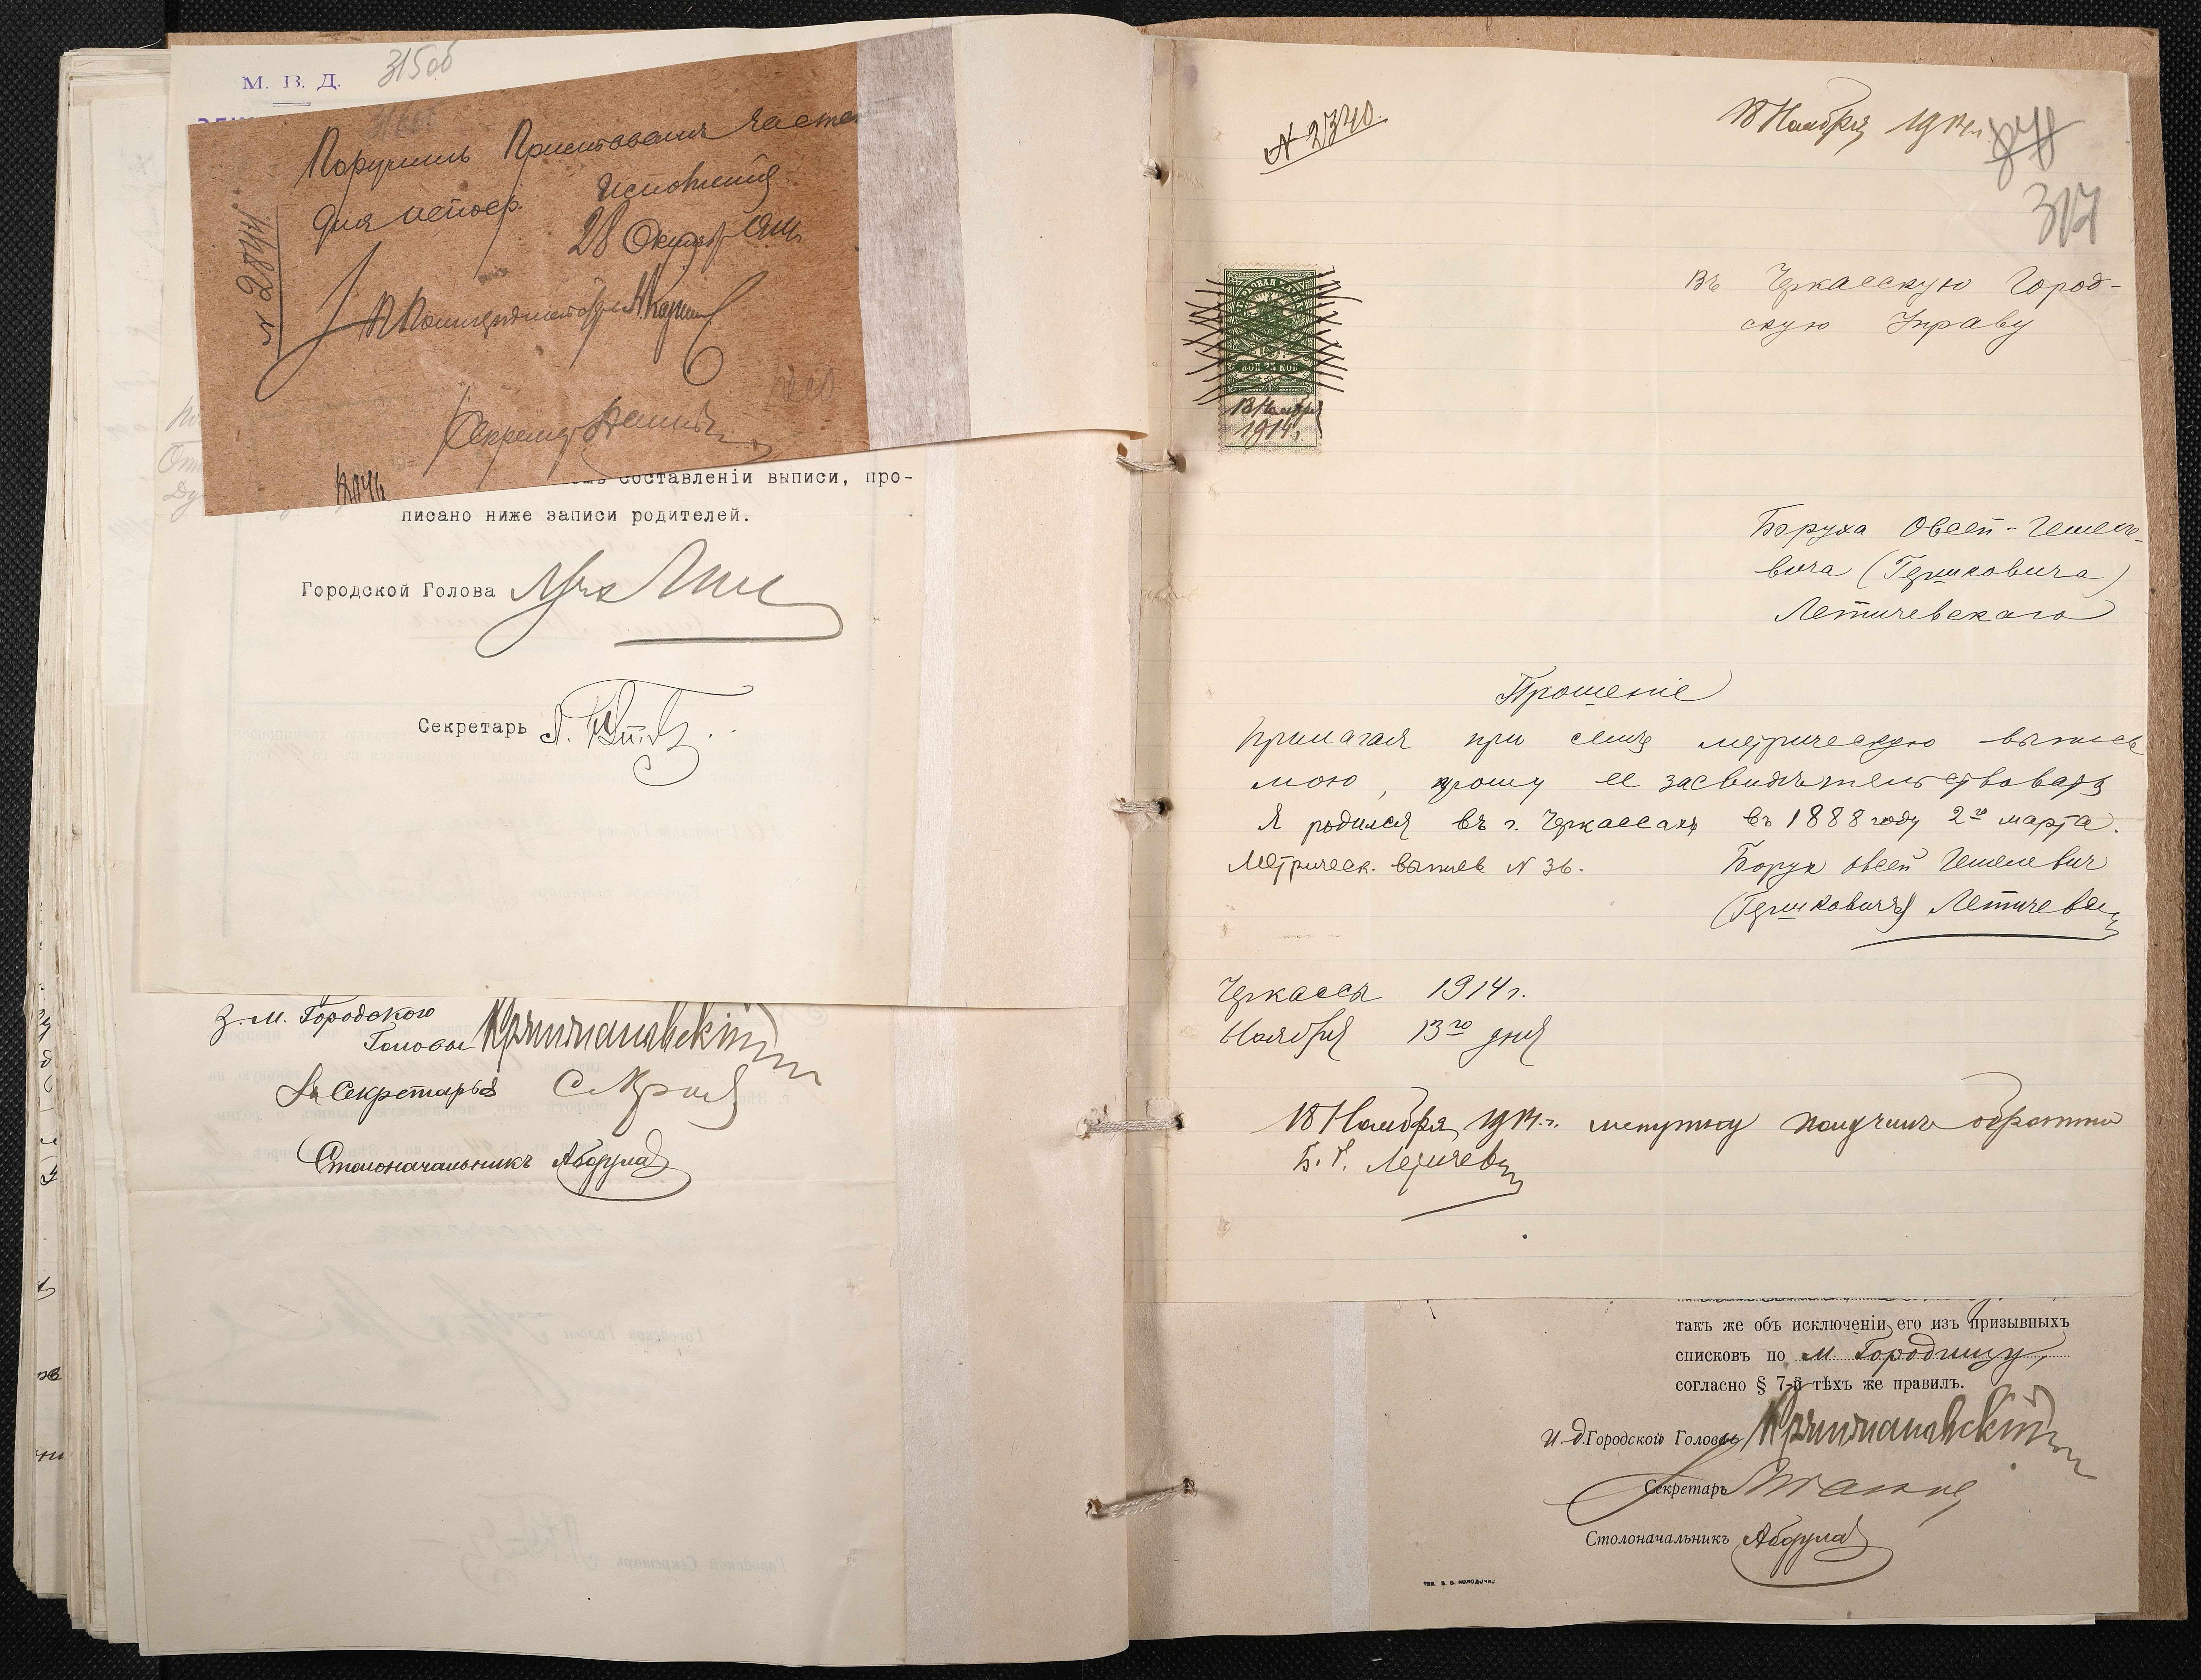 М. В. Д.
315 об
Поручить Приставамъ частей
для непоср. исполненія
28 Октяб
№ 2894
Полиціймейстеръ
Секретар
составленіи выписи, про-
писано ниже записи родителей.
Городской Голова
Секретарь
З. М. Городского
Головы Крыжановскій
За Секретаря
Столоначальникъ Абдула
№ 2340.
18 Ноября 1914 г.
317
Въ Черкасскую Город-
скую Управу
КОП 75 КОП
13 Ноября
1914 г.
Боруха Овсей-Гешеле-
вича (Гершковича)
Летичевскаго
Прошеніе
Прилагая при семъ метрическую выпись
мою, прошу ее засвидѣтельствовать
Я родился въ г. Черкассахъ въ 1888 году 2го марта.
Метрическ. выпись N 36.
Борух Овсей Гешелевич
(Гершковичъ) Летичевск
Черкассы 1914 г.
Ноября 13го дня
18 Ноября 1914 г. метрику получилъ обратно
Б. Г. Летичевск
такъ же объ исключеніи его изъ призывныхъ
списковъ по м. Городищу,
согласно § 7-й тѣхъ же правилъ.
И. д. Городской Головы Крыжановскій
Секретарь
Столоначальникъ Абдула